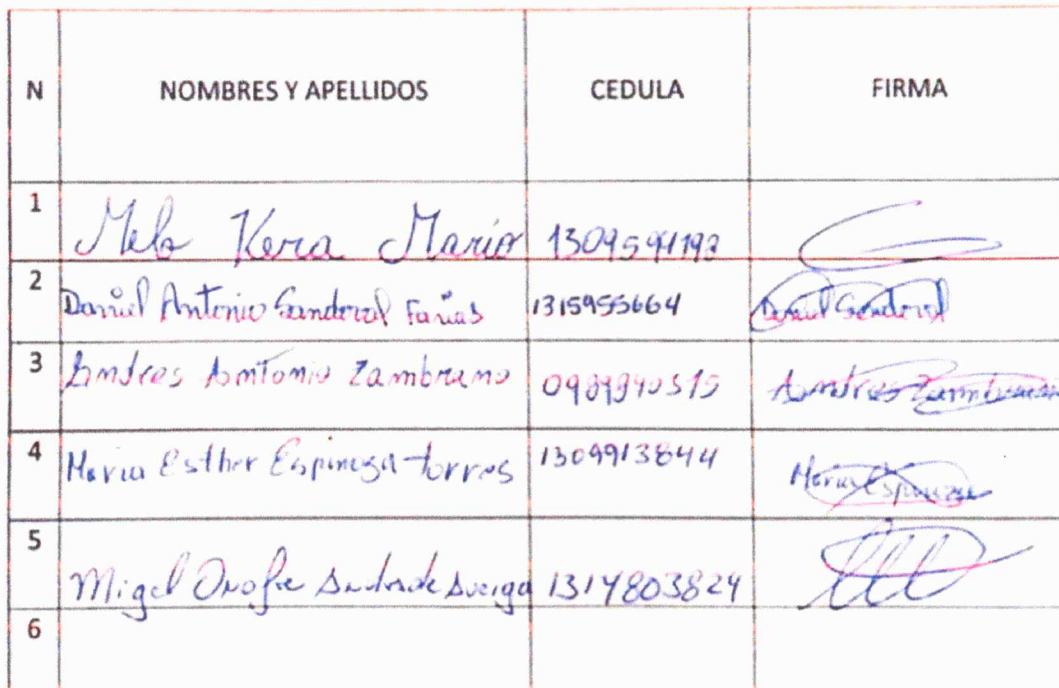 N NOMBRES Y APELLIDOS CEDULA FIRMA
1 Mario
2 Daniel Antonio Sandoval Farias 1315955664 Daniel Sandoval
3 Andres Antonio Zambrano Andres Zambrano
4 Maria Esther Espinoza torres 1309913844 Maria Espinoza
5 Migel Onofre 1314803824
6